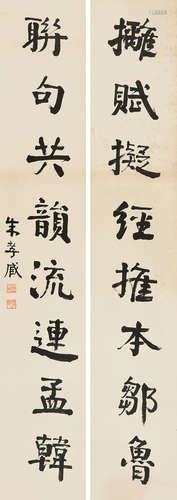 擁賦擬經推本鄒魯
聯句共韻流連孟韓
朱孝臧